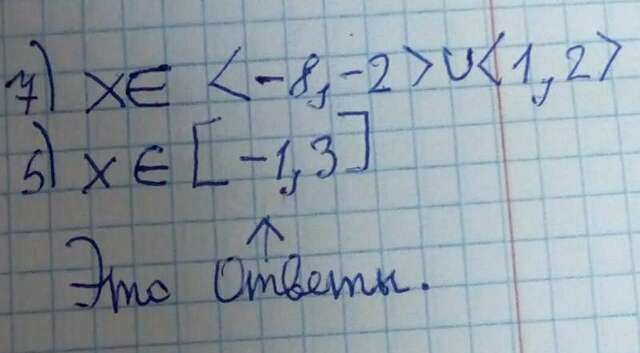 7) x∈ <-8,-2>∪<1,2>
5) x∈[-1,3]
↑
Это ответы.